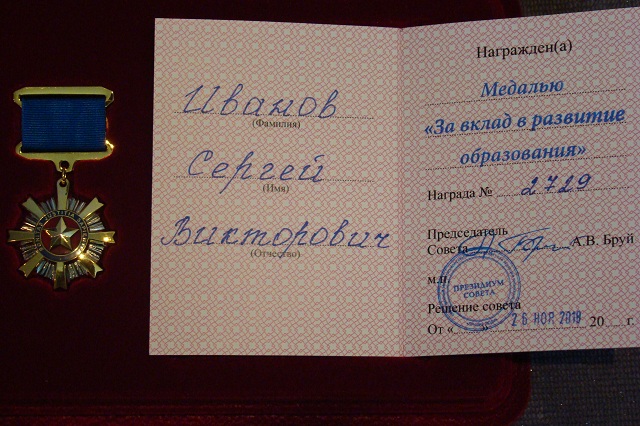 Иванов
(Фамилия)
Сергей
(Имя)
Викторович
(Отчество)
Награжден(а)
Медалью
«За вклад в развитие
образования»
Награда № 2729
Председатель
Совета А.В. Бруй
м.п.
ПРЕЗИДИУМ
СОВЕТА
Решение совета
От « » 26 НОЯ 2018 20 г.